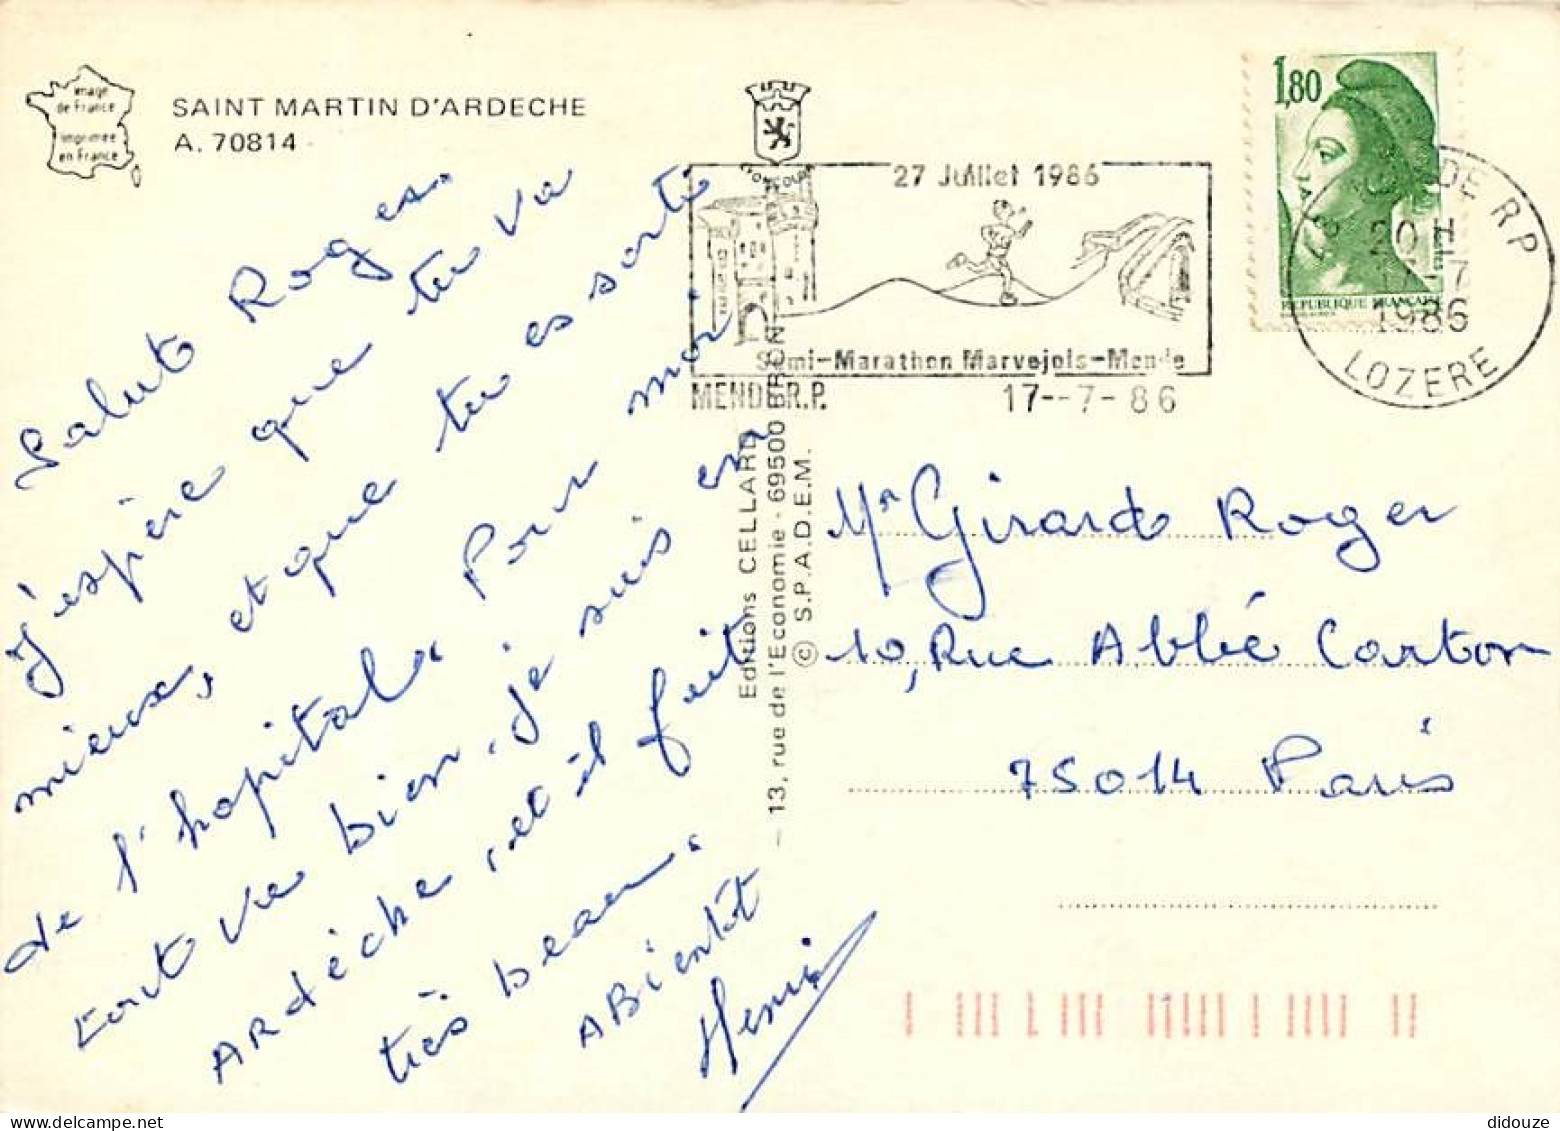 Image
de France
imprimée
en France
SAINT MARTIN D'ARDECHE
A. 70814
Salut Roger.
j'espère que tu va
mieux, et que tu es sorti
de l'hopital. Pour moi
tout va bien, je suis en
ARdèche, et il fait
très beau.
ABientôt
Henri
Editions CELLARD
13, rue de l'Economie - 69500 BRON
© S.P.A.D.E.M.
27 Juillet 1986
Semi-Marathon Marvejols-Mende
MENDE R.P.
17--7-86
1,80
REPUBLIQUE FRANÇAISE
48 MENDE RP
20 H
17-7
1986
LOZERE
Mr Girard Roger
10, Rue Abbé Carton
75014 Paris
didouze